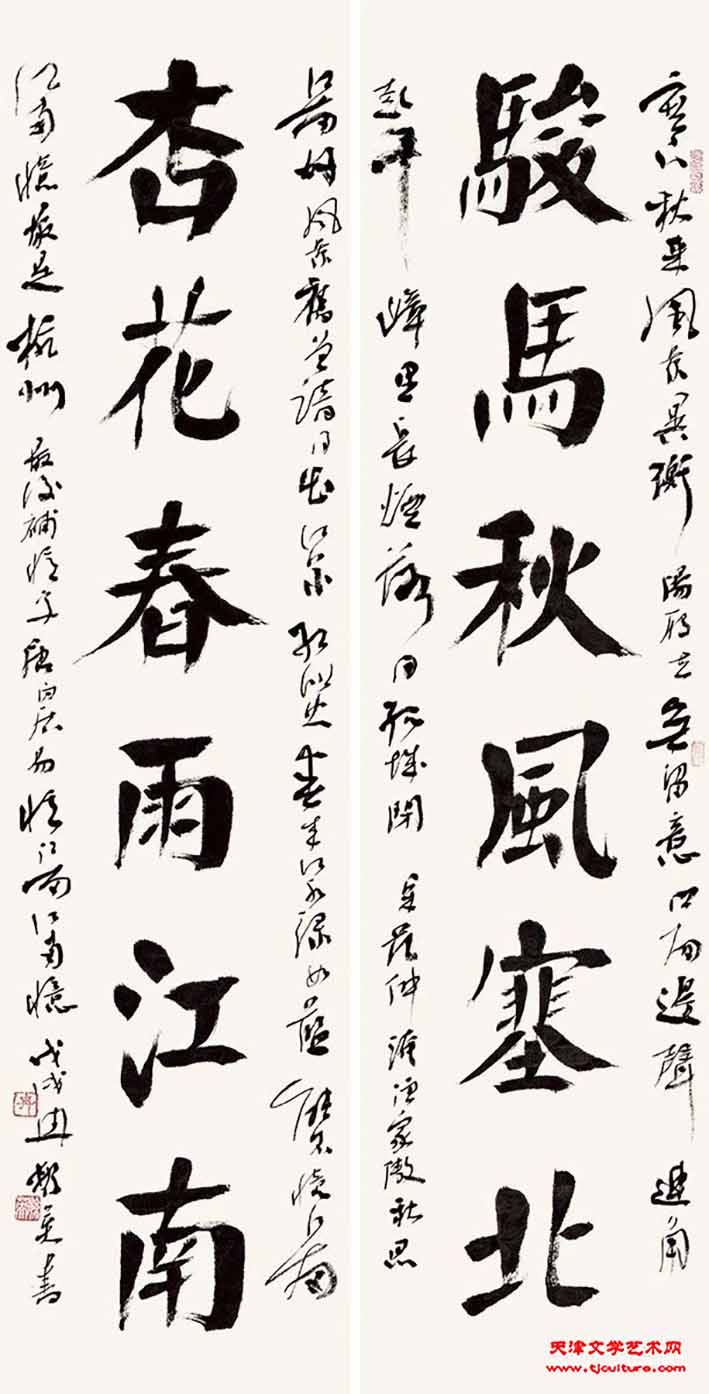 塞下秋来風景異衡陽雁去無留意四面邊聲連角
駿馬秋風塞北
起千嶂里長煙落日孤城閉 宋范仲淹漁家傲秋思
江南好風景舊曾諳日出江花紅勝火春来江水綠如藍能不憶江南
杏花春雨江南
江南憶最是杭州 唐白居易憶江南江南憶 戊戌 書
天津文学艺术网
www.tjculture.com